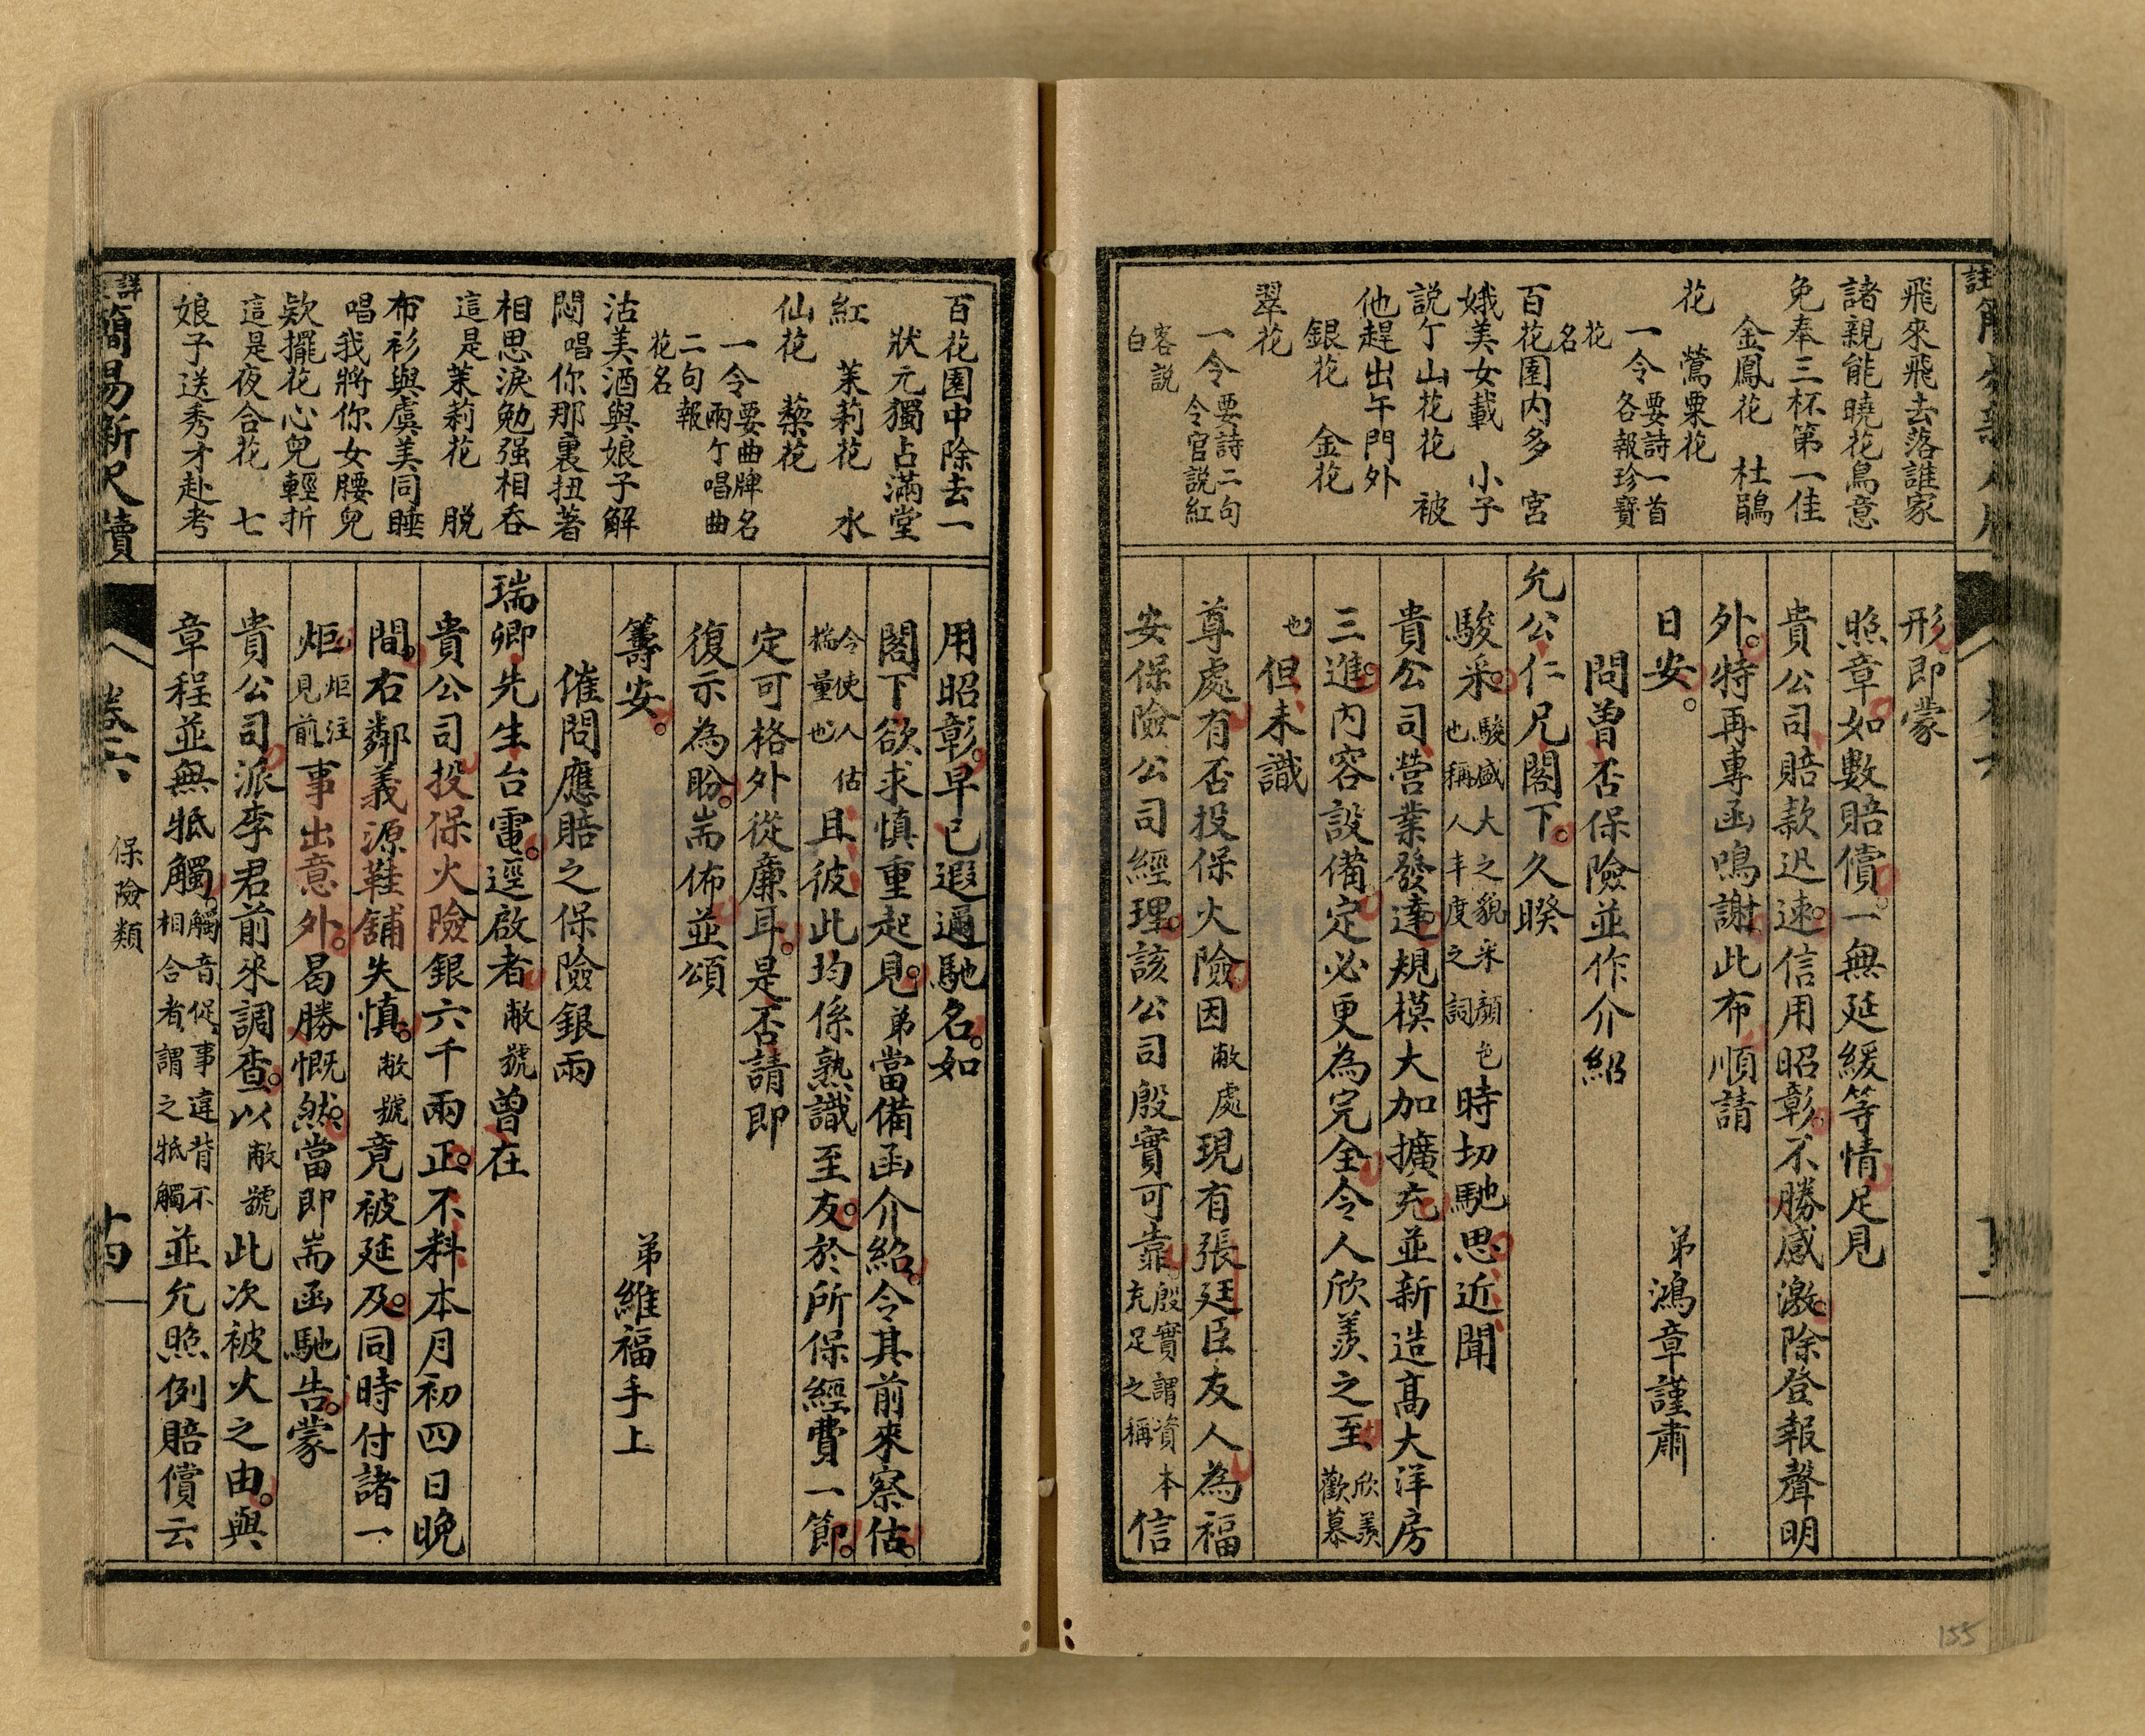 飛來飛去落誰家
諸親能曉花鳥意
免奉三杯第一佳
金鳳花 杜鵑
花 鶯粟花
一令 要詩一首各報珍寶
花名
百花園内多 宮
娥美女載 小子
説亇山花花 被
他趕出午門外
銀花 金花
翠花
一令 要詩二句令官説紅
客説白
形即蒙
照章如數賠償。一無延緩等情足見
貴公司賠款迅速。信用昭彰。不勝感激。除登報聲明
外。特再專函鳴謝此布順請
日安。 弟鴻章謹肅
問曾否保險並作介紹
允公仁兄閣下。久暌
駿采。駿盛大之貌采顔色也稱人丰度之詞時切馳思近聞
貴公司營業發達。規模大加擴充並新造高大洋房
三進。内容設備定必更為完全令人欣羨之至欣羨歡慕
也但未識
尊處有否投保火險因敝處現有張廷臣友人為福
安保險公司經理。該公司殷實可靠。殷實謂資本充足之稱信
百花園中除去一
狀元獨占滿堂
紅 茉莉花 水
仙花 蘂花
一令 要曲牌名二句報
兩亇唱曲花名
沽美酒與娘子解
悶 唱你那裏扭著
相思淚勉强相吞
這是茉莉花 脱
布衫與虞美同睡
唱我將你女腰兒
欵擺花心兒輕折
這是夜合花 七
娘子送秀才赴考
用昭彰。早已遐邇馳名。如
閣下欲求慎重起見。弟當備函介紹。令其前來察估。
今使人估揣量也且彼此均係熟識至友。於所保經費一節。
定可格外從廉耳。是否請即
復示為盼。耑佈並頌
籌安。 弟維福手上
催問應賠之保險銀兩
瑞卿先生台電。逕啟者敝號曾在
貴公司投保火險銀六千兩正。不料本月初四日晚
間。右鄰義源鞋舖失慎。敝號竟被延及。同時付諸一
炬炬注見前事出意外。曷勝慨然。當即耑函馳告。蒙
貴公司派李君前來調查。以敝號此次被火之由。與
章程並無牴觸。觸音促事違背不相合者謂之牴觸並允照例賠償云
簡易新尺牘
卷六
保險類
十四
155